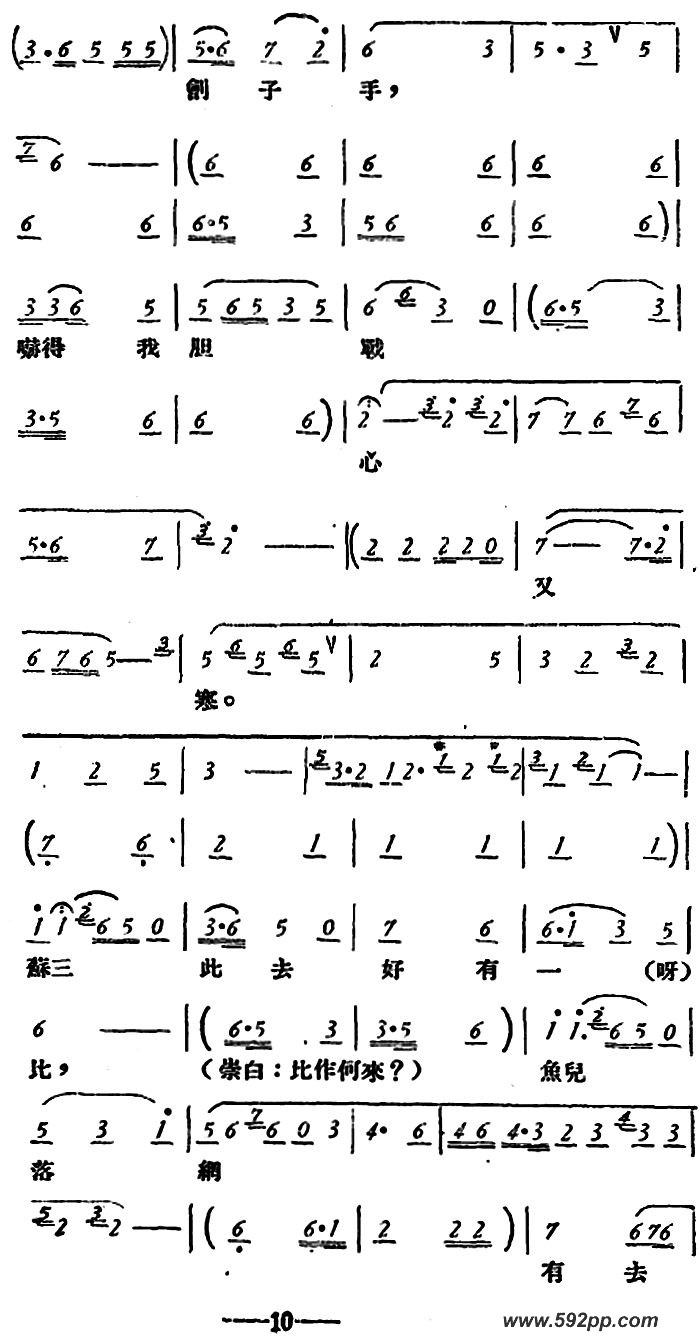 (3·6 5 5 5) | 5·6 7 2 | 6 3 | 5·3 V 5 |
劊 子 手，
7 6 — | (6 6 | 6 6 | 6 6 |
6 6 | 6·5 3 | 5 6 6 | 6 6) |
3 3 6 5 | 5 6 5 3 5 | 6 6 3 0 | (6·5 3 |
嚇得 我 胆 戰
3·5 6 | 6 6) | 2 — 3 2 3 2 | 7 7 6 7 6 |
心
5·6 7 | 3 2 — | (2 2 2 2 0 | 7 — 7·2 |
又
6 7 6 5 — 3 | 5 6 5 6 5 V | 2 5 | 3 2 3 2 |
寒。
1 2 5 | 3 — | 5 3·2 1 2· 1 2 1 2 | 3 1 2 1 1 — |
(7 6 | 2 1 | 1 1 | 1 1) |
1 1 2 6 5 0 | 3·6 5 0 | 7 6 | 6·1 3 5 |
蘇三 此 去 好 有 一 (呀)
6 — | (6·5 3 | 3·5 6) | 1 1· 2 6 5 0 |
比， (崇白：比作何來？) 魚兒
5 3 1 | 5 6 7 6 0 3 | 4· 6 | 4 6 4·3 2 3 4 3 3 |
落 網
5 2 3 2 — | (6 6·1 | 2 2 2) | 7 6 7 6 |
有 去
—10—
www.592pp.com